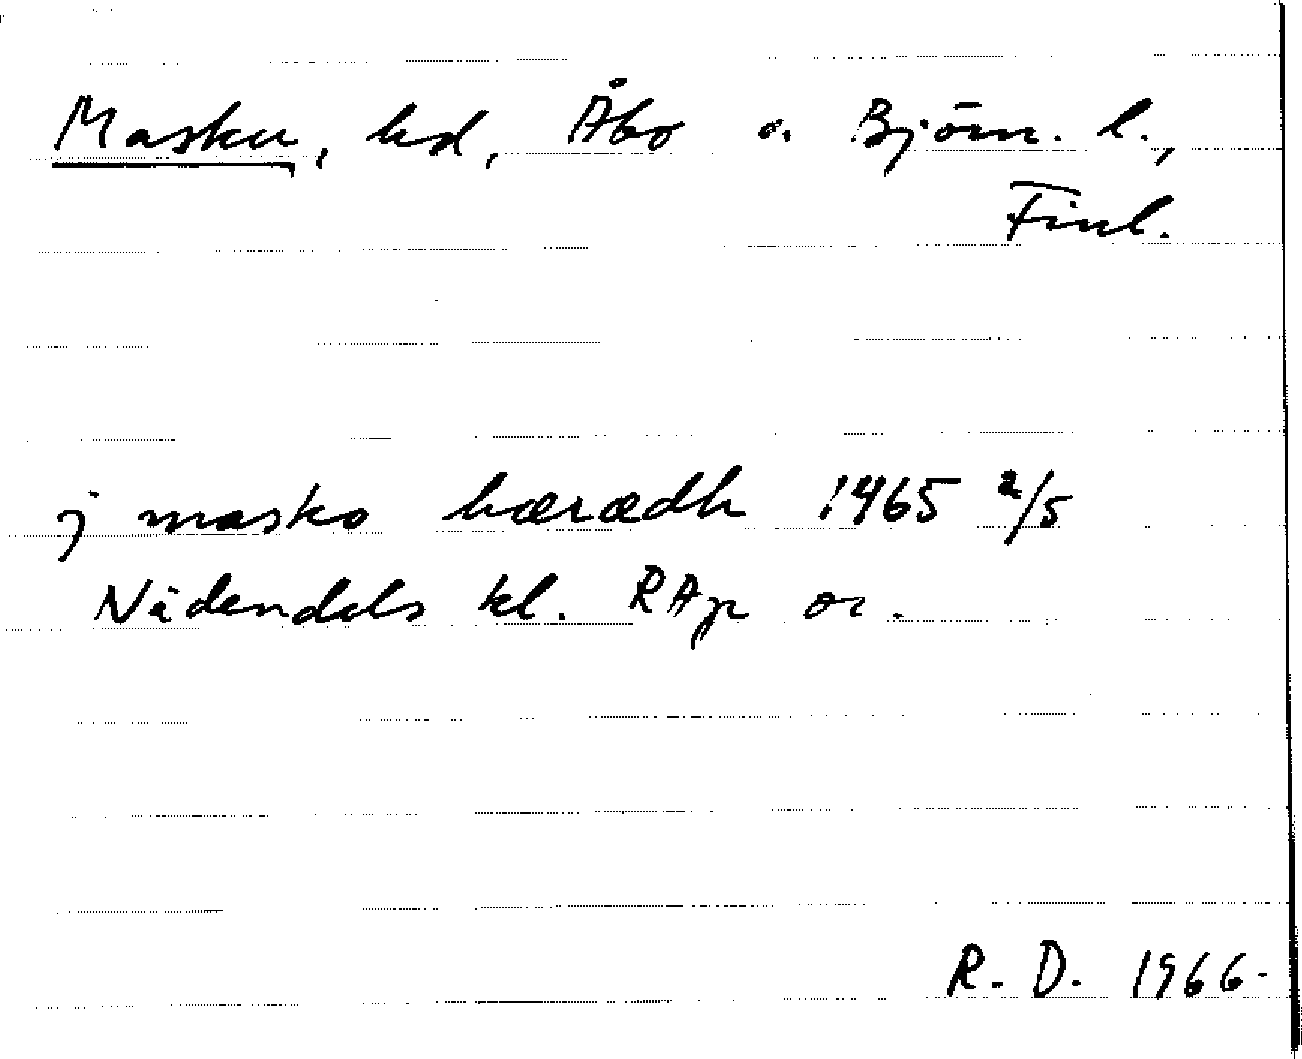 Masku, hd, Åbo o. Björn. l.,
Finl.
j masko hæradh 1465 2/5
Nådendals kl. RAp or.
R. D. 1966.